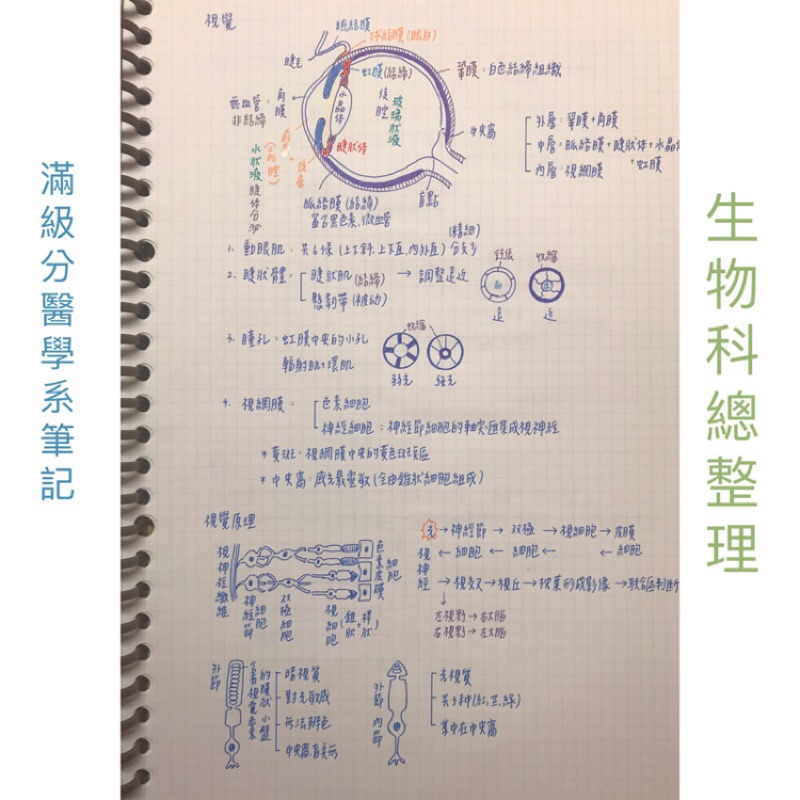 滿級分醫學系筆記
生物科總整理
視覺
眼結膜
球結膜(眼白)
睫毛
虹膜(結締)
鞏膜:白色結締組織
無血管: 角膜
非結締
水晶體
後腔
玻璃狀液
中央窩
外層: 鞏膜+角膜
中層: 脈絡膜+睫狀体+水晶体+虹膜
內層: 視網膜
水狀液(前腔)
睫体分泌
前房
後房
睫狀体
脈絡膜(結締)
富含黑色素、微血管
盲點
1. 動眼肌: 共6條(上下斜,上下直,內外直)
(精細)
2. 睫狀體:
睫狀肌(結締)
懸韌帶(被动)
→ 調整遠近
鬆張
收縮
遠
近
3. 瞳孔=虹膜中央的小孔
輻射肌+環肌
收縮
弱光
強光
4. 視網膜:
色素細胞
神經細胞=神經節細胞的軸突匯集成視神經
*黃斑: 視網膜中央的黃色斑狀區
*中央窩: 感光最靈敏(全由錐狀細胞組成)
視覺原理
視神經纖維
神經節細胞
双極細胞
視細胞(錐狀+桿狀)
色素皮膜細胞
光→神經節→双極→視細胞→皮膜
視神經←細胞←細胞← ←細胞
→視交→視丘→枕葉形成影像→聯合區判斷
左視野→右大腦
右視野→左大腦
外節
含有視覺色素的膜狀小盤
暗視質
對光敏感
無法辨色
中央窩育無
外節
內節
光視質
共3種(紅、藍、綠)
集中在中央窩